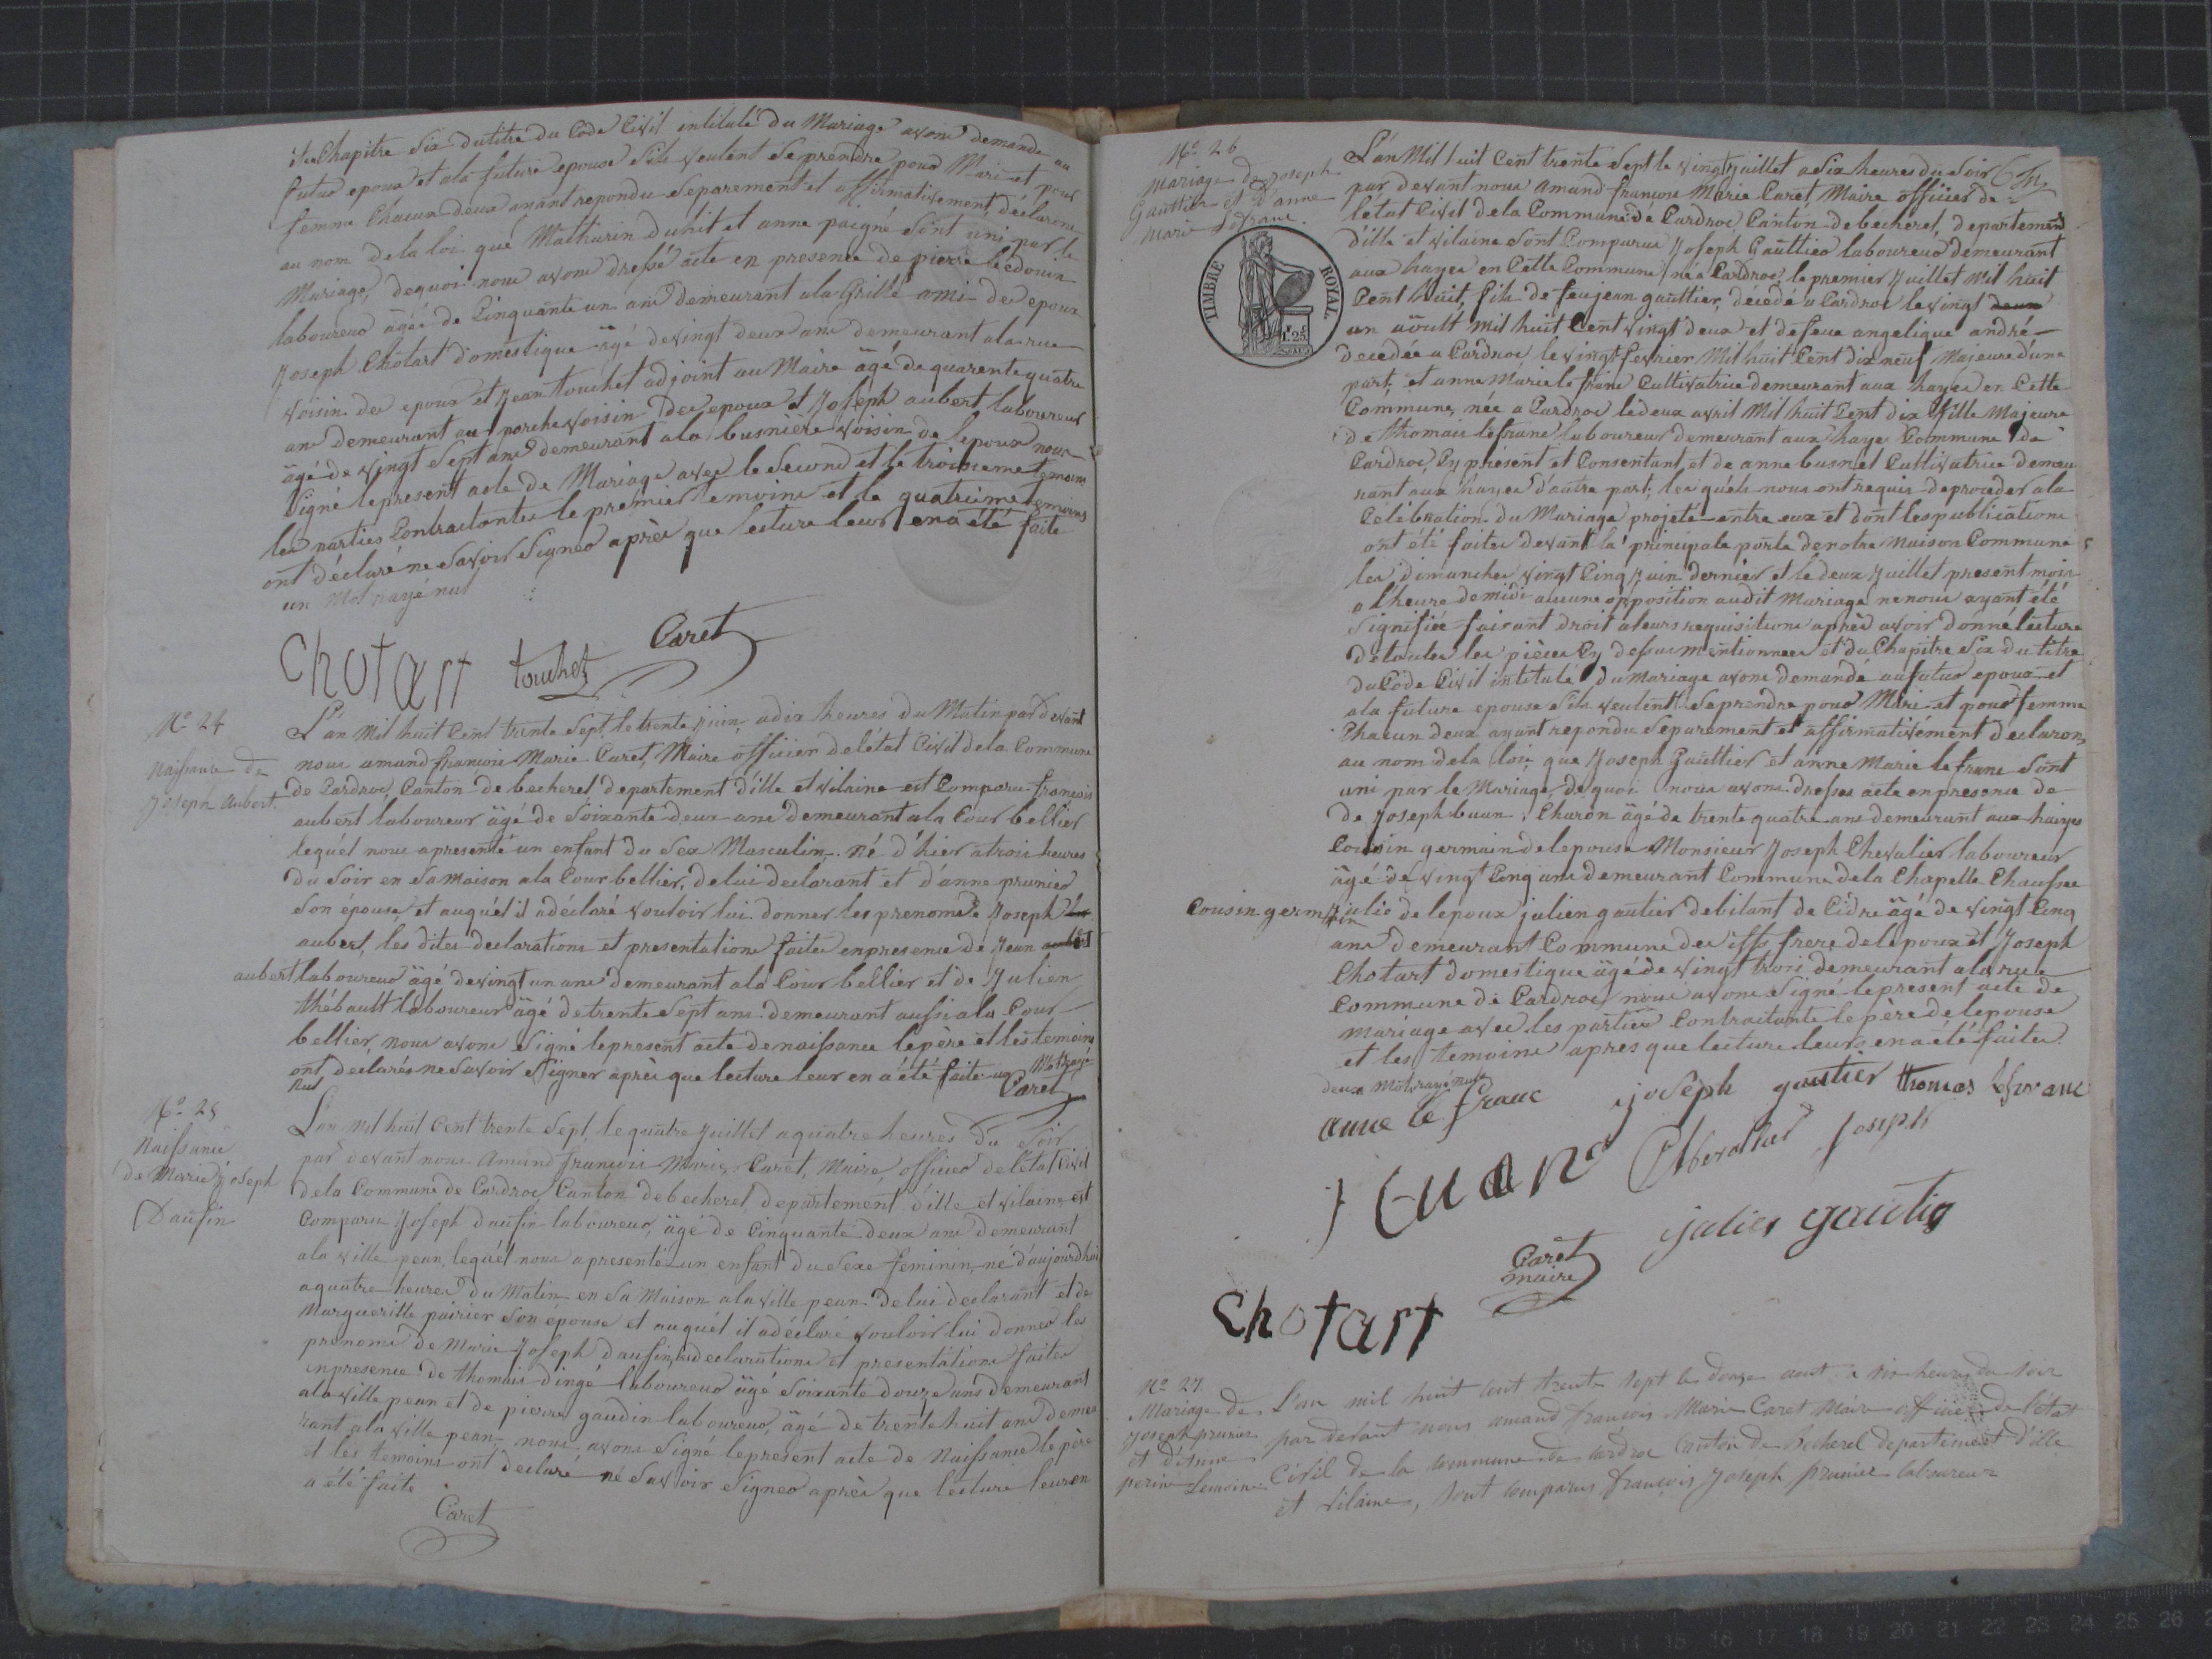 du Chapitre Six du titre du Code Civil intitulé du Mariage avons demandé au
futur epoux et ala future epouse S'ils veulent Se prendre pour Mari et pour
femme Chacun deux ayant repondu Separement et affirmativement, déclarons
au nom dela loi que Mathurin duhit et anne paigné Sont uni par le
Mariage, dequoi nous avons dressé acte en presence de pierre ledouin
laboureur âgée de Cinquante un ans demeurant ala Grille ami des epoux
Joseph Chotart domestique âgé devingt deux ans demeurant ala rue
Voisin des epoux et Jean touchet adjoint au Maire âgé de quarente quatre
ans demeurant au porche voisin des epoux et Joseph aubert laboureur
âgé de vingt Sept ans demeurant ala busnière voisin de lepoux nous
Signé lepresent acte de Mariage avec le Second et le troisieme temoin
les parties Contractantes le premier temoins et le quatrième temoins
ont déclaré ne Savoir Signer après que lecture leur en a été faite
un Mot rayé nul
Chotart touchet Caret
No 24
Naissance de
Joseph Aubert.
L'an Mil huit Cent trente Sept, le trente juin, adix heures du Matin par devant
nous amand françois Marie Caret, Maire officier delétat Civil dela Commune
de Cardroc, Canton de becherel departement d'ille et vilaine est Comparu françois
aubert laboureur âgé de Soixante deux ans demeurant ala Cour bellier
lequél nous apresenté un enfant du Sex Masculin, né d'hier atrois heures
du Soir en Samaison ala Cour bellier, delui declarant et d'anne prunier
Son épouse, et auquél il adéclaré vouloir lui donner les prenoms de Joseph
aubert, les dites declarations et presentations faites enpresence de Jean aubert
aubert laboureur âgé devingt un ans demeurant ala Cour bellier et de Julien
thébault laboureur âgé detrente Sept ans demeurant aussi ala Cour
bellier, nous avons Signé lepresent acte denaissance lepère et les temoins
ont declarés ne Savoir Signer après que lecture leur en a été faite un Mot rayé
nul Caret
No 25
Naissance
de Marie Joseph
Daufin
L'an Mil huit Cent trente Sept, lequatre Juillet aquatre heures du Soir
par devant nous Amand françois Marie Caret, Maire, officier delétat Civil
dela Commune de Cardroc Canton debecherel, departement d'ille et vilaine est
Comparu Joseph daufin laboureur, âgé de Cinquante deux ans demeurant
ala ville pean, lequél nous apresenté un enfant du Sexe feminin, né d'aujourdhui
aquatre heures du Matin en Sa Maison alaville pean delui declarant et de
Margueritte poirier Son épouse et auquel il adéclaré vouloir lui donner les
prenoms de Marie Joseph daufin, declarations et presentations faites
enpresence de thomas dingé laboureur âgé Soixante douze ans demeurant
alaville pean et de pierre gaudin laboureur, âgé de trente huit ans demeu
rant ala ville pean, nous avons Signé lepresent acte de Naissance lepère
et les temoins ont déclaré né Savoir Signer après que lecture leur en
a été faite
Caret
No 26
Mariage de Joseph
Gauttier et d'anne
Marie Lefranc.
TIMBRE ROYAL
1f 25c
L'an Mil huit Cent trente Sept le vingt juillet aSix heures du Soir
par devant nous amand françois Marie Caret, Maire officier de
létat Civil dela Commune de Cardroc, Canton debecherel, departement
d'ille et vilaine Sont Comparus Joseph Gauttier laboureur demeurant
aux hayes en Cette Commune, né a Cardroc, le premier Juillet Mil huit
Cent huit, fils de feu jean gauttier, décédé a Cardroc le vingt deux
un aôult Mil huit Cent vingt deux et de feue angelique andré
decedée a Cardroc le vingt fevrier Mil huit Cent dix neuf, Majeure d'une
part, et anne Marie le franc Cultivatrice demeurant aux hayes en Cette
Commune, née a Cardroc le deux avril Mil huit Cent dix fille Majeure
de thomas lefranc laboureur demeurant aux hayes Commune de
Cardroc, Cy présent et Consentant, et de anne busnel Cultivatrice demeu
rant aux hayes d'autre part; les quels nous ont requis deproceder ala
Célébration du Mariage projeté entre eux et dont les publications
ont été faites devant la principale porte denotre Maison Commune
les dimanches vingt Cinq Juin dernier et le deux Juillet present mois
a l'heure de midi aucune opposition audit Mariage nenous ayant été
Signifiée faisant droit aleurs requisitions après avoir donné lecture
detoutes les pièces Cy dessus mentionnees et du Chapitre Six du titre
du Code Civil intitulé du Mariage avons demandé au futur epoux et
ala future epouse S'ils veulent Seprendre pour Mari et pour femme
Chacun deux ayant repondu Separement et affirmativément declarons
au nom dela loi, que Joseph Gauttier et anne Marie lefranc Sont
uni par le Mariage, de quoi nous avons dressé acte enpresence de
de Joseph buan Charon âgé de trente quatre ans demeurant aux hayes
Cousin germain de lepouse Monsieur Joseph Chevalier laboureur
âgé de vingt Cinq ans demeurant Commune dela Chapelle Chaussee
Cousin germain de lepoux julien gautier debitant de Cidre âgé de vingt Cinq
ans demeurant Commune des iffs frere de lepoux et Joseph
Chotart domestique âgé de vingt trois demeurant ala rue
Commune de Cardroc, nous avons Signé lepresent acte de
Mariage avec les parties Contractante le père de lepouse
et les temoins apres que lecture leurs en a été faite
deux Mots rayé nuls
anne le franc joseph gautier thomas lefranc
J buan Chevallier joseph
julien gautier
Caret
maire
Chotart
No 27
Mariage de
Joseph prunier
et d'anne
perine Lemoine
L'an mil huit cent trente sept le douze aout à six heures du soir
par devant nous amand françois Marie Caret Maire officier de l'état
Civil de la commune de cardroc Canton de Becherel departement d'ille
et vilaine, sont comparus françois Joseph prunier laboureur